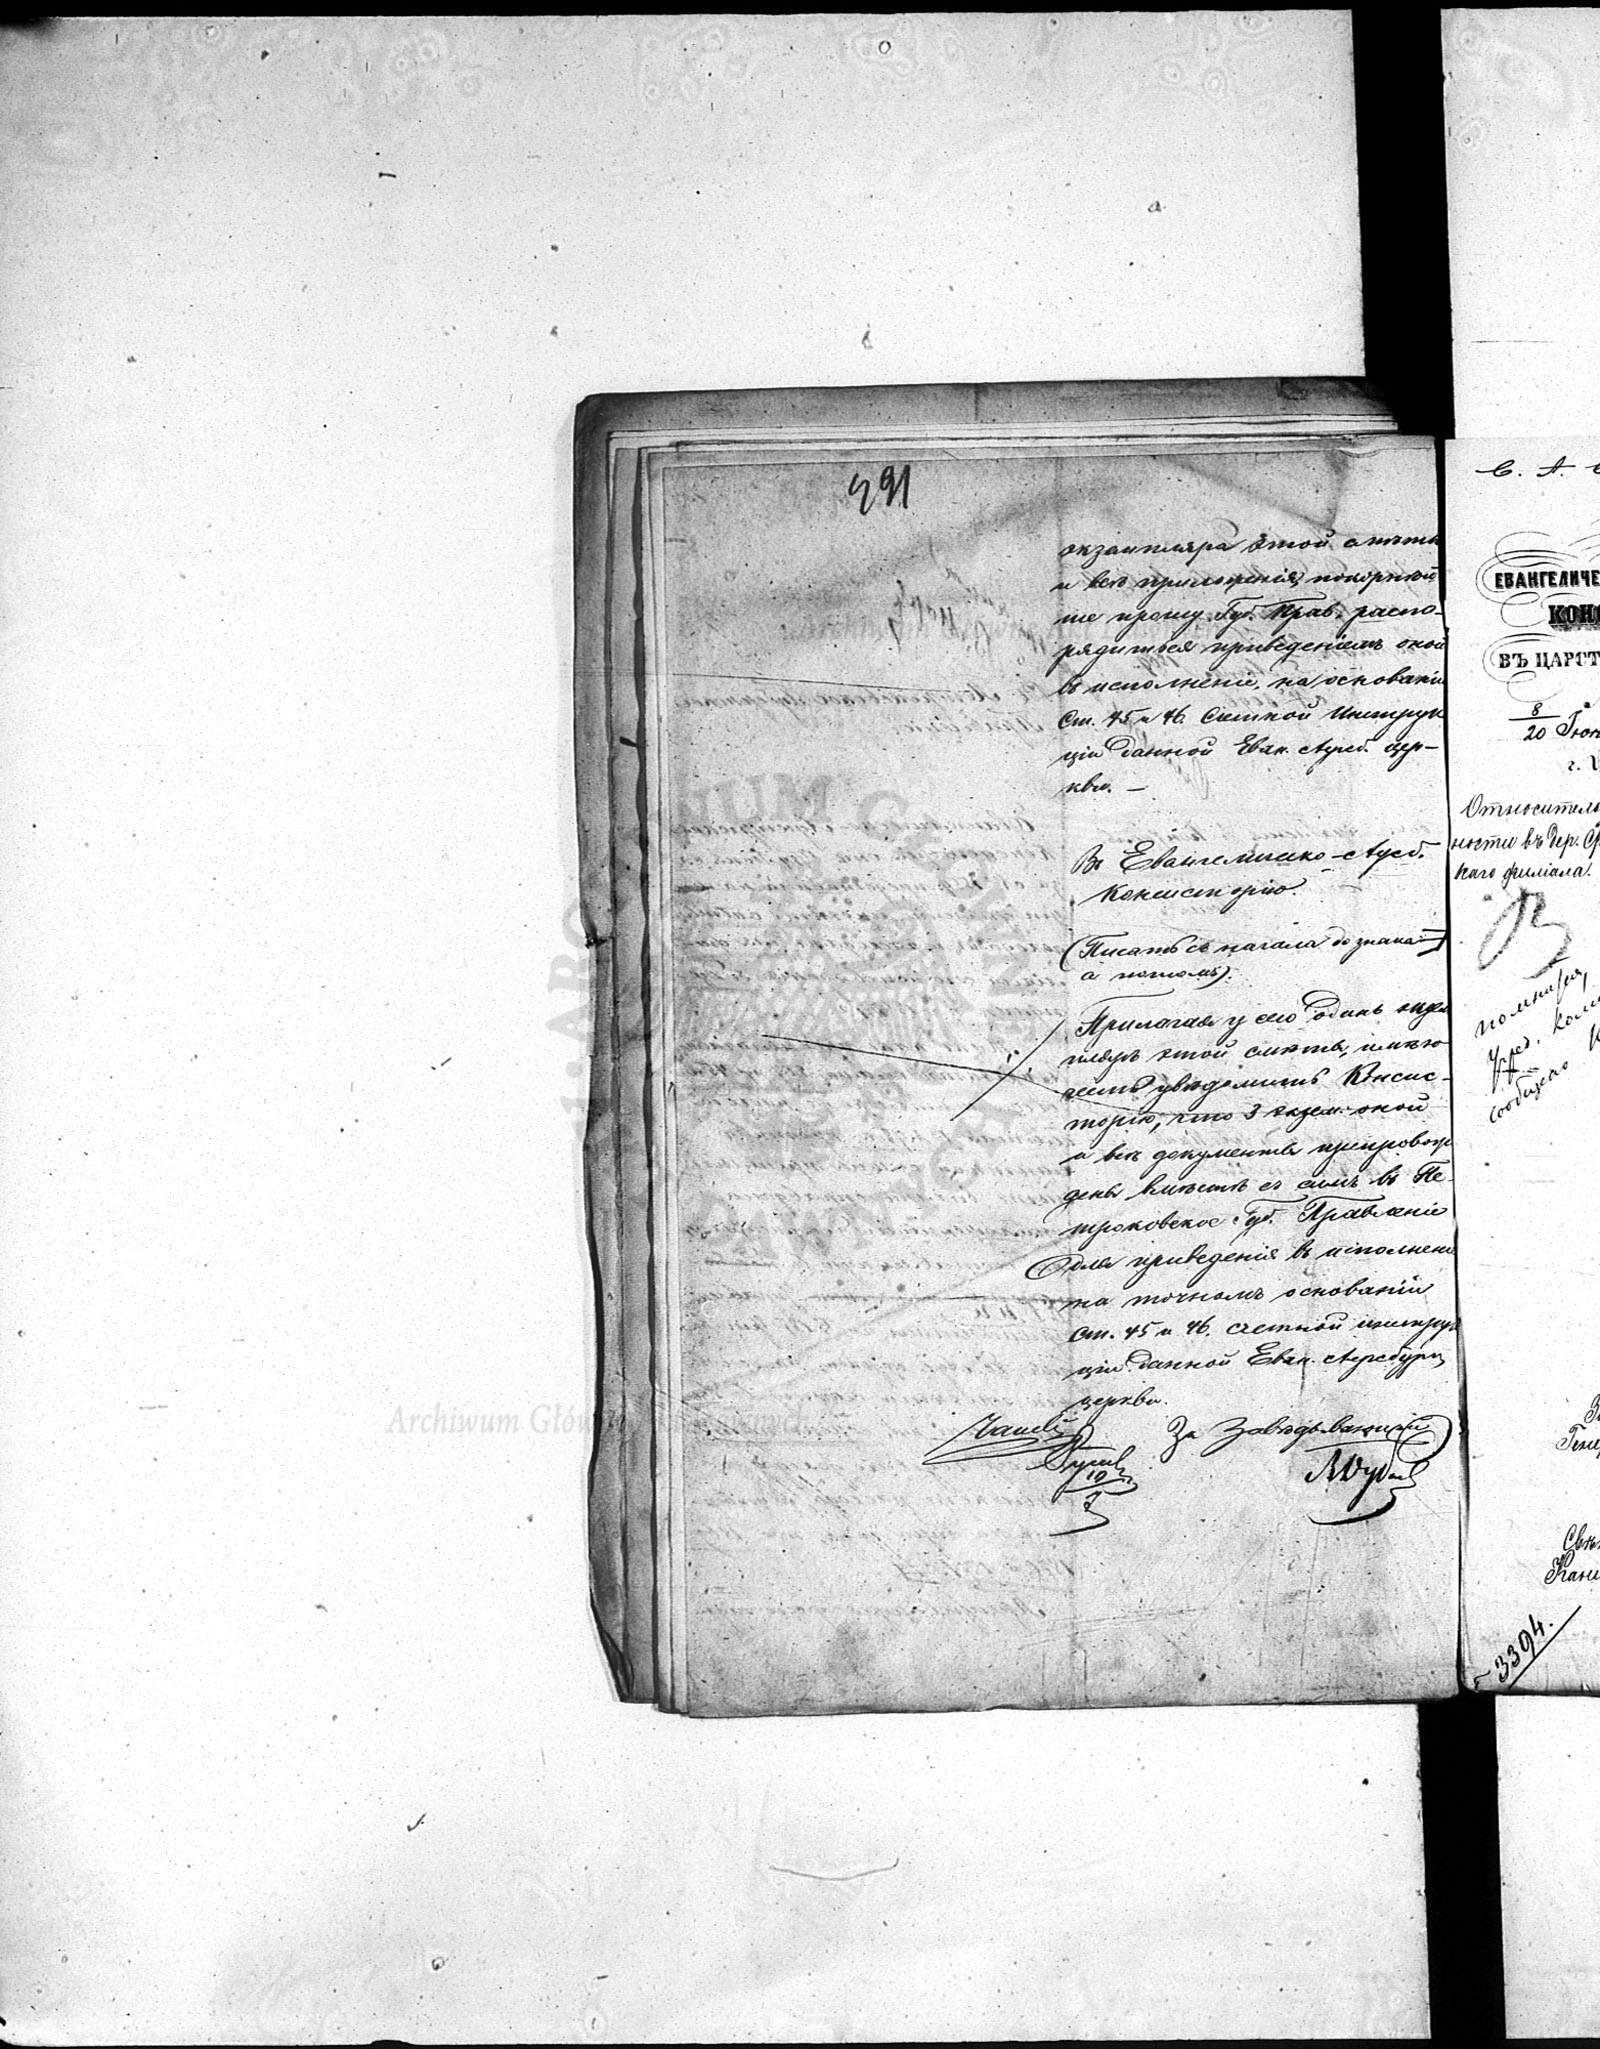 291
экземпляра этой смѣты
и всѣ приложенія, покорнѣй
ше прошу Губ. Прав. распо-
рядиться приведеніемъ оной
въ исполненіе, на основаніи
Ст. 45 и 46. Счетной Инструк
ціи данной Еван. Аугсб. цер-
кви. —
Въ Евангелическо-Аугсб.
Консисторію.
(Писать съ начала до знака
а потомъ).
Прилагая у сего одинъ экзем
пляръ этой смѣты, имѣю
честь увѣдомить Консис-
торію, что 3 экзем. оной
и всѣ документы препровож
дены вмѣстѣ съ симъ въ Пе-
троковское Губ. Правленіе
для приведенія въ исполнені
на точномъ основаніи
Ст. 45 и 46. счетной инструк
ціи данной Еван. Аугсбург.
церкви.
За Завѣдывающій
10
С. А.
ЕВАНГЕЛИЧЕ
КОН
ВЪ ЦАРСТ
8
20 Іюн
г.
Относитель
ности въ дер.
каго филіала.
сообщено
Ген
3394.
Archiwum Głó